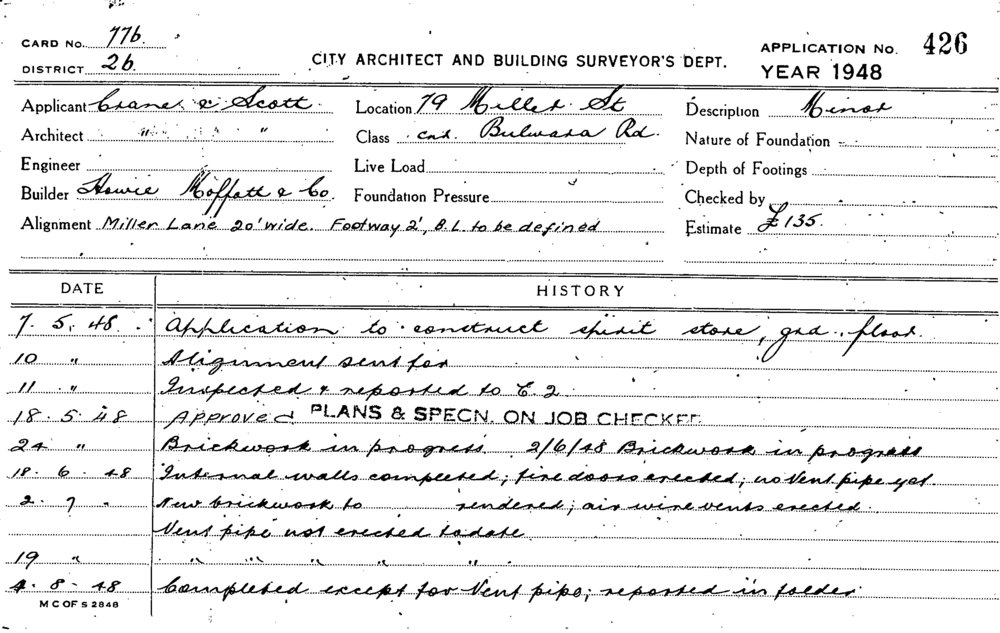 CARD No. 77b.
DISTRICT 2b.
CITY ARCHITECT AND BUILDING SURVEYOR'S DEPT.
APPLICATION No. 426
YEAR 1948
Applicant Crane & Scott. Location 79 Miller St Description Minor
Architect " " " " Class cnr. Bulwara Rd. Nature of Foundation
Engineer Live Load Depth of Footings
Builder Howie Moffatt & Co. Foundation Pressure Checked by
Alignment Miller Lane 20' wide. Footway 2', B.L. to be defined Estimate £135.
DATE HISTORY
7. 5. 48. Application to construct spirit store, grd. floor.
10 " Alignment sent for
11 " Inspected & reported to E.2.
18. 5. 48 Approved PLANS & SPECN. ON JOB CHECKED
24 " Brickwork in progress 2/6/48 Brickwork in progress
18. 6. 48 Internal walls completed; fire doors erected; no Vent pipe yet
2. 7 " New brickwork to rendered; air wire vents erected.
Vent pipe not erected to date
19 " " " " " "
4. 8. 48 Completed except for Vent pipe; reported in folder
M C OF S 2848